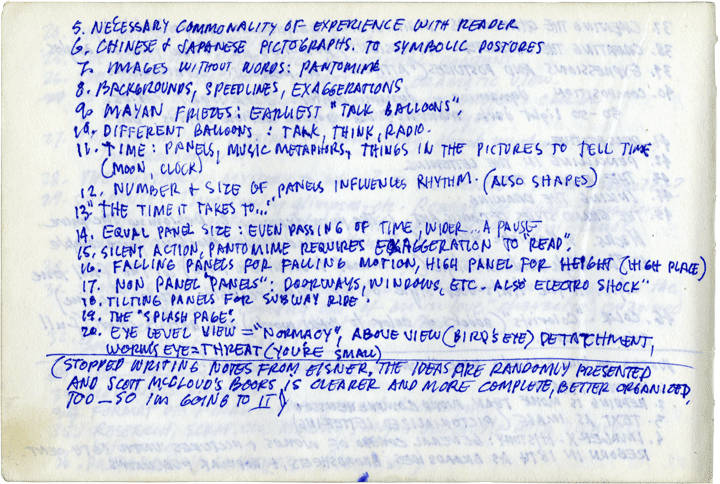 5. NECESSARY COMMONALITY OF EXPERIENCE WITH READER
6. CHINESE & JAPANESE PICTOGRAPHS. TO SYMBOLIC POSTURES
7. IMAGES WITHOUT WORDS: PANTOMIME
8. BACKGROUNDS, SPEEDLINES, EXAGGERATIONS
9. MAYAN FRIEZES: EARLIEST "TALK BALLOONS".
10. DIFFERENT BALLOONS: TALK, THINK, RADIO.
11. TIME: PANELS, MUSIC METAPHORS, THINGS IN THE PICTURES TO TELL TIME
(MOON, CLOCK)
12. NUMBER + SIZE OF PANELS INFLUENCES RHYTHM. (ALSO SHAPES)
13. "THE TIME IT TAKES TO..."
14. EQUAL PANEL SIZE: EVEN PASSING OF TIME, WIDER... A PAUSE
15. SILENT ACTION, PANTOMIME REQUIRES EXAGGERATION TO "READ".
16. FALLING PANELS FOR FALLING MOTION, HIGH PANEL FOR HEIGHT (HIGH PLACE)
17. NON PANEL "PANELS": DOORWAYS, WINDOWS, ETC. ALSO ELECTRO SHOCK"
18. TILTING PANELS FOR SUBWAY RIDE".
19. THE "SPLASH PAGE".
20. EYE LEVEL VIEW = "NORMACY", ABOVE VIEW (BIRD'S EYE) DETATCHMENT,
WORM'S EYE = THREAT (YOU'RE SMALL)
(STOPPED WRITING NOTES FROM EISNER, THE IDEAS ARE RANDOMLY PRESENTED
AND SCOTT McCLOUD'S BOOKS IS CLEARER AND MORE COMPLETE, BETTER ORGANIZED,
TOO — SO I'M GOING TO IT)